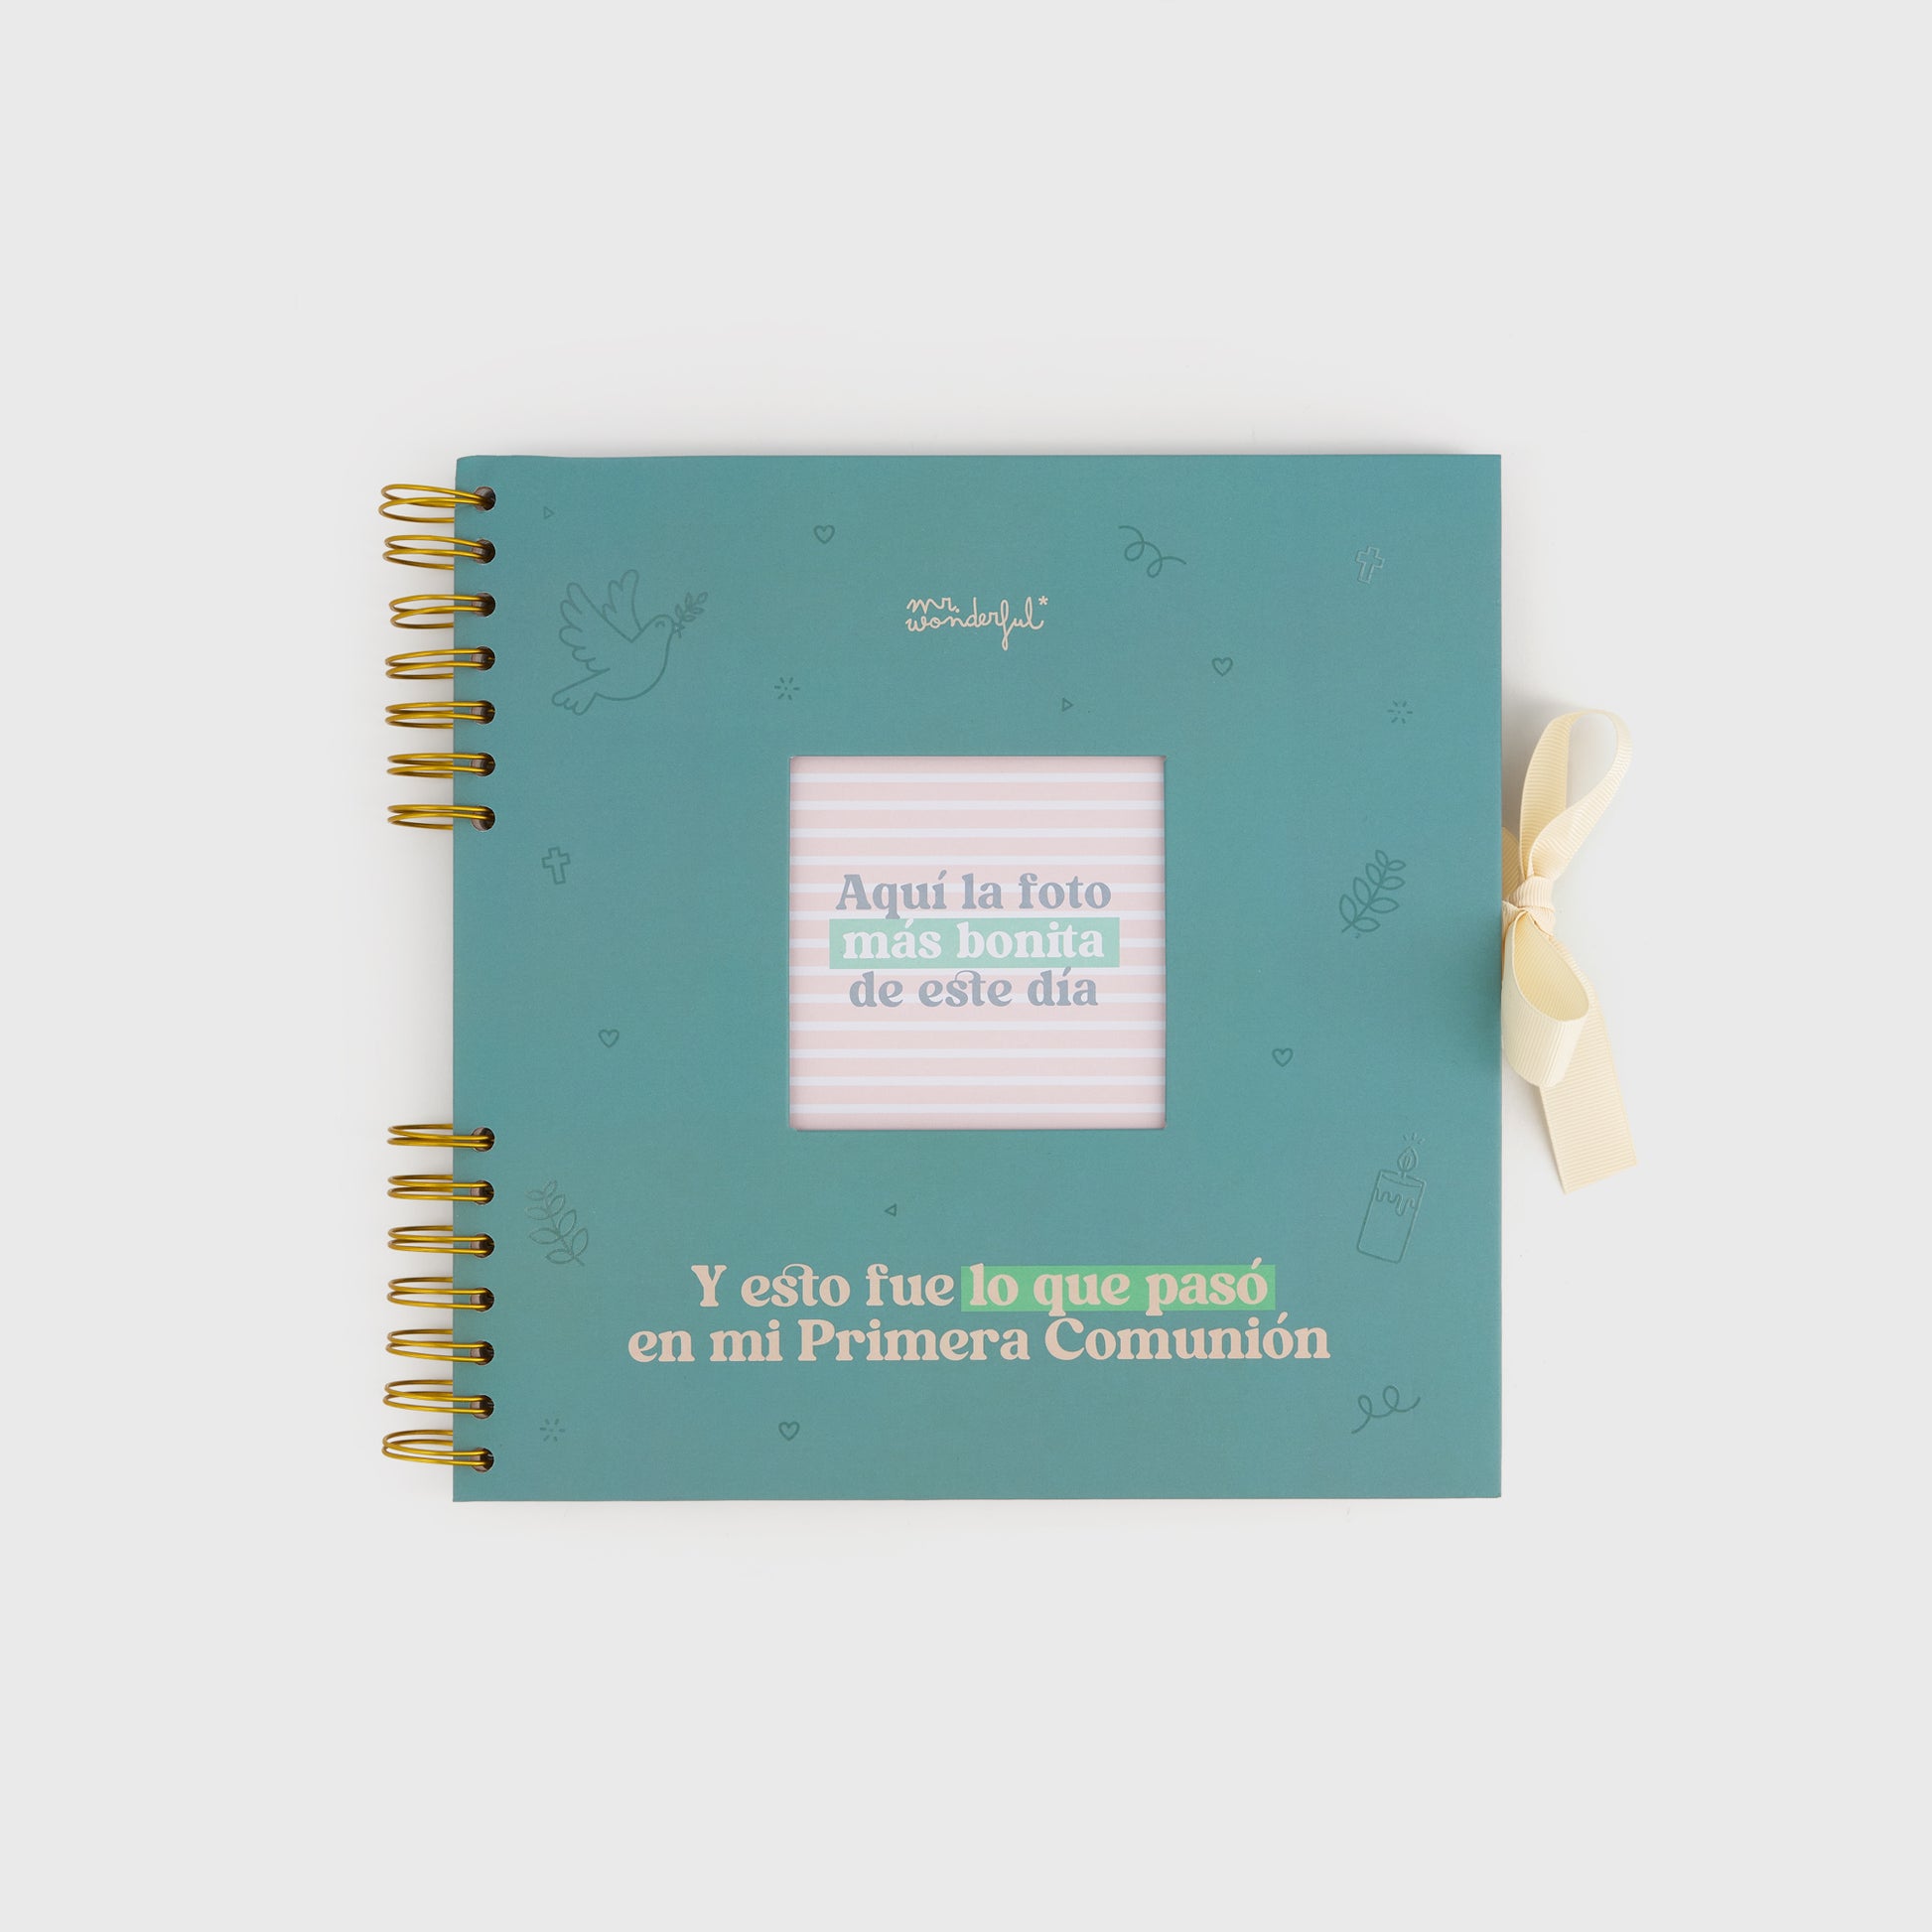 mr.
wonderful*
Aquí la foto
más bonita
de este día
Y esto fue lo que pasó
en mi Primera Comunión